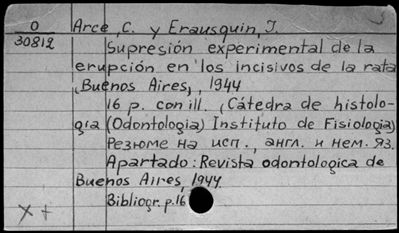 О
30812
Arce, C. y Erausquin, J.
Supresión experimental de la
erupción en los incisivos de la rata
, Buenos Aires, , 1944
16 p. con ill. , (Cátedra de histolo-
gia (Odontologia) Instituto de Fisiologia)
Резюме на исп., англ. и нем. яз.
Apartado: Revista odontologica de
Buenos Aires, 1944
Bibliogr. p. 16
X +